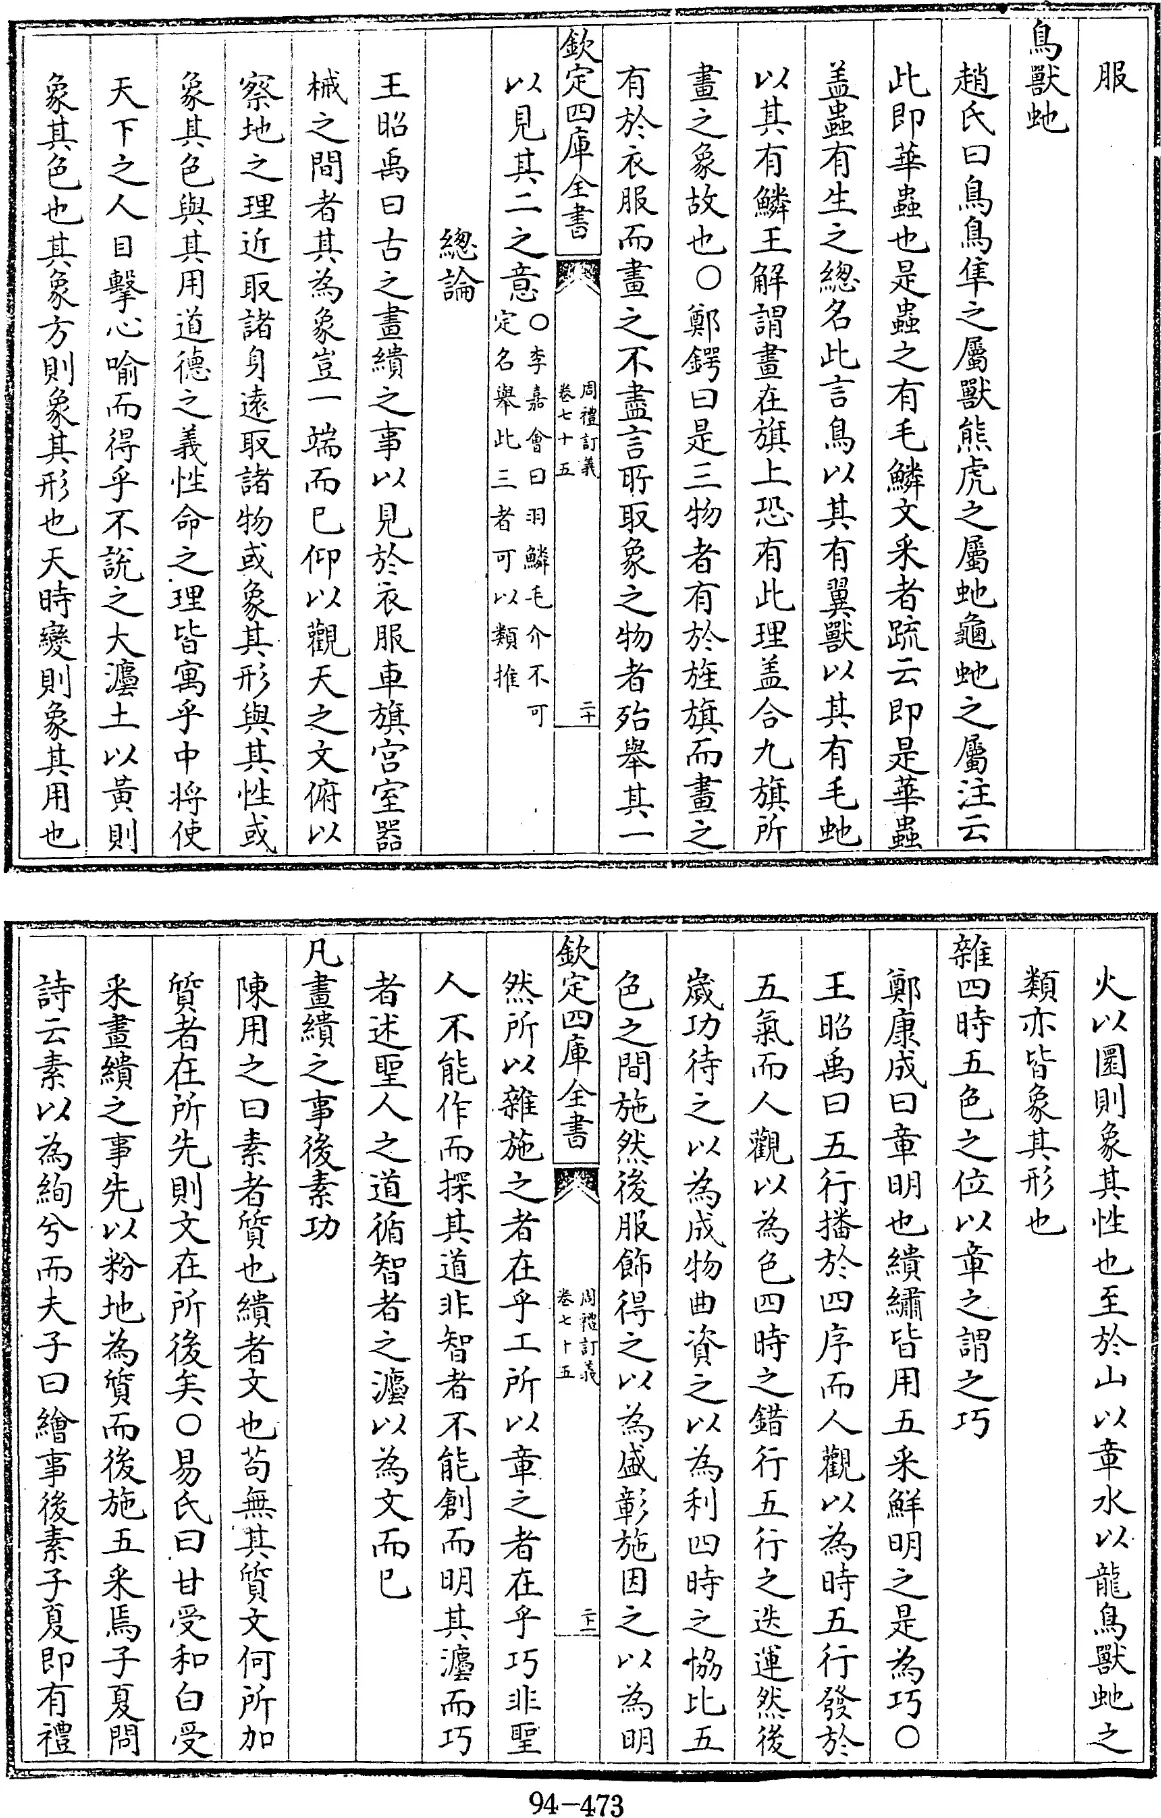 服
鳥獸虵
趙氏曰鳥鳥隼之屬獸熊虎之屬虵龜虵之屬注云
此即華蟲也是蟲之有毛鱗文采者疏云即是華蟲
盖蟲有生之總名此言鳥以其有翼獸以其有毛虵
以其有鱗王解謂畫在旗上恐有此理盖合九旗所
畫之象故也〇鄭鍔曰是三物者有於旌旗而畫之
有於衣服而畫之不盡言所取象之物者殆舉其一
欽定四庫全書
周禮訂義
卷七十五
二十
以見其二之意〇李嘉會曰羽鱗毛介不可
定名舉此三者可以類推
總論
王昭禹曰古之畫繢之事以見於衣服車旗宫室器
械之間者其為象豈一端而已仰以觀天之文俯以
察地之理近取諸身遠取諸物或象其形與其性或
象其色與其用道德之義性命之理皆寓乎中将使
天下之人目擊心喻而得乎不說之大灋土以黃則
象其色也其象方則象其形也天時變則象其用也
火以圜則象其性也至於山以章水以龍鳥獸虵之
類亦皆象其形也
雜四時五色之位以章之謂之巧
鄭康成曰章明也繢繡皆用五采鮮明之是為巧〇
王昭禹曰五行播於四序而人觀以為時五行發於
五氣而人觀以為色四時之錯行五行之迭運然後
歲功待之以為成物曲資之以為利四時之協比五
色之間施然後服飾得之以為盛彰施因之以為明
欽定四庫全書
周禮訂義
卷七十五
二十一
然所以雜施之者在乎工所以章之者在乎巧非聖
人不能作而探其道非智者不能創而明其灋而巧
者述聖人之道循智者之灋以為文而已
凡畫繢之事後素功
陳用之曰素者質也繢者文也苟無其質文何所加
質者在所先則文在所後矣〇易氏曰甘受和白受
采畫繢之事先以粉地為質而後施五采焉子夏問
詩云素以為絢兮而夫子曰繪事後素子夏即有禮
94-473